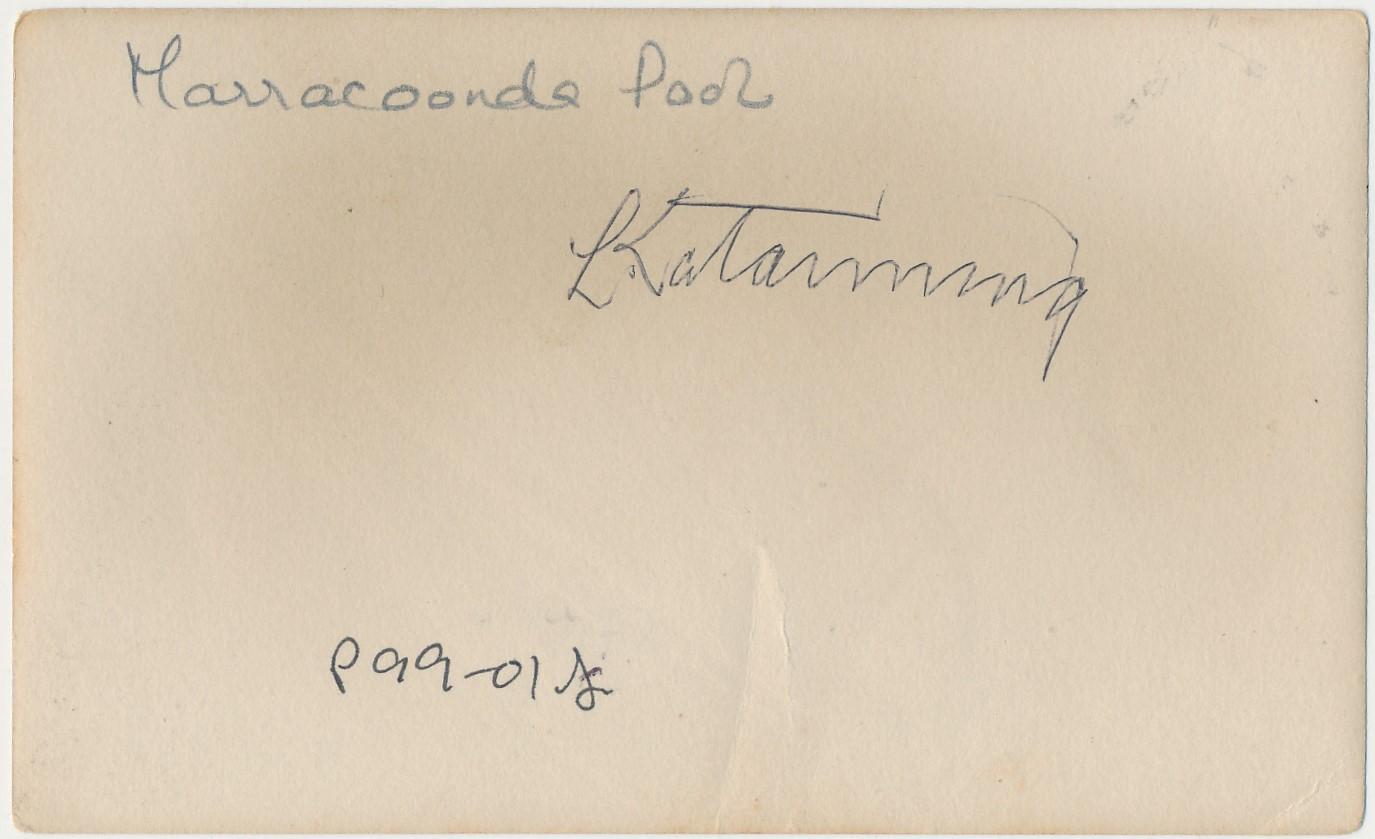 Marracoonda Pool
Katanning
P99-01